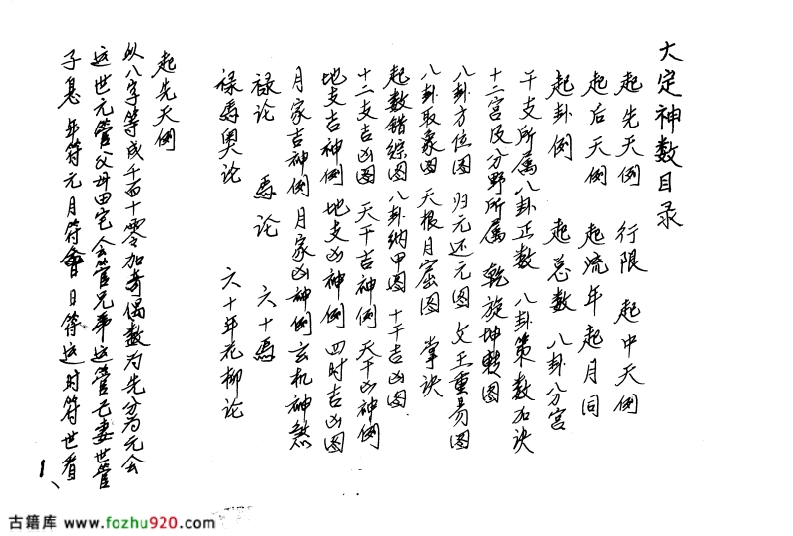 大定神数目录
起先天例 行限 起中天例
起后天例 起流年起月同
起卦例 起总数 八卦分宫
干支所属八卦正数 八卦策数加诀
十二宫及分野所属 乾旋坤转图
八卦方位图 归元还元图 文王重易图
八卦取象图 天根月窟图 掌诀
起数错综图 八卦纳甲图 十干吉凶图
十二支吉凶图 天干吉神例 天干凶神例
地支吉神例 地支凶神例 四时吉凶图
月家吉神例 月家凶神例 玄机神煞
禄论 马论 六十马
禄马奥论 六十年花柳论
起先天例
以八字等成千百十零加奇偶数为先分为元会
运世元管父母田宅会管兄弟运管己妻世管
子息年符元月符会日符运时符世看
1、
古籍库 www.fozhu920.com